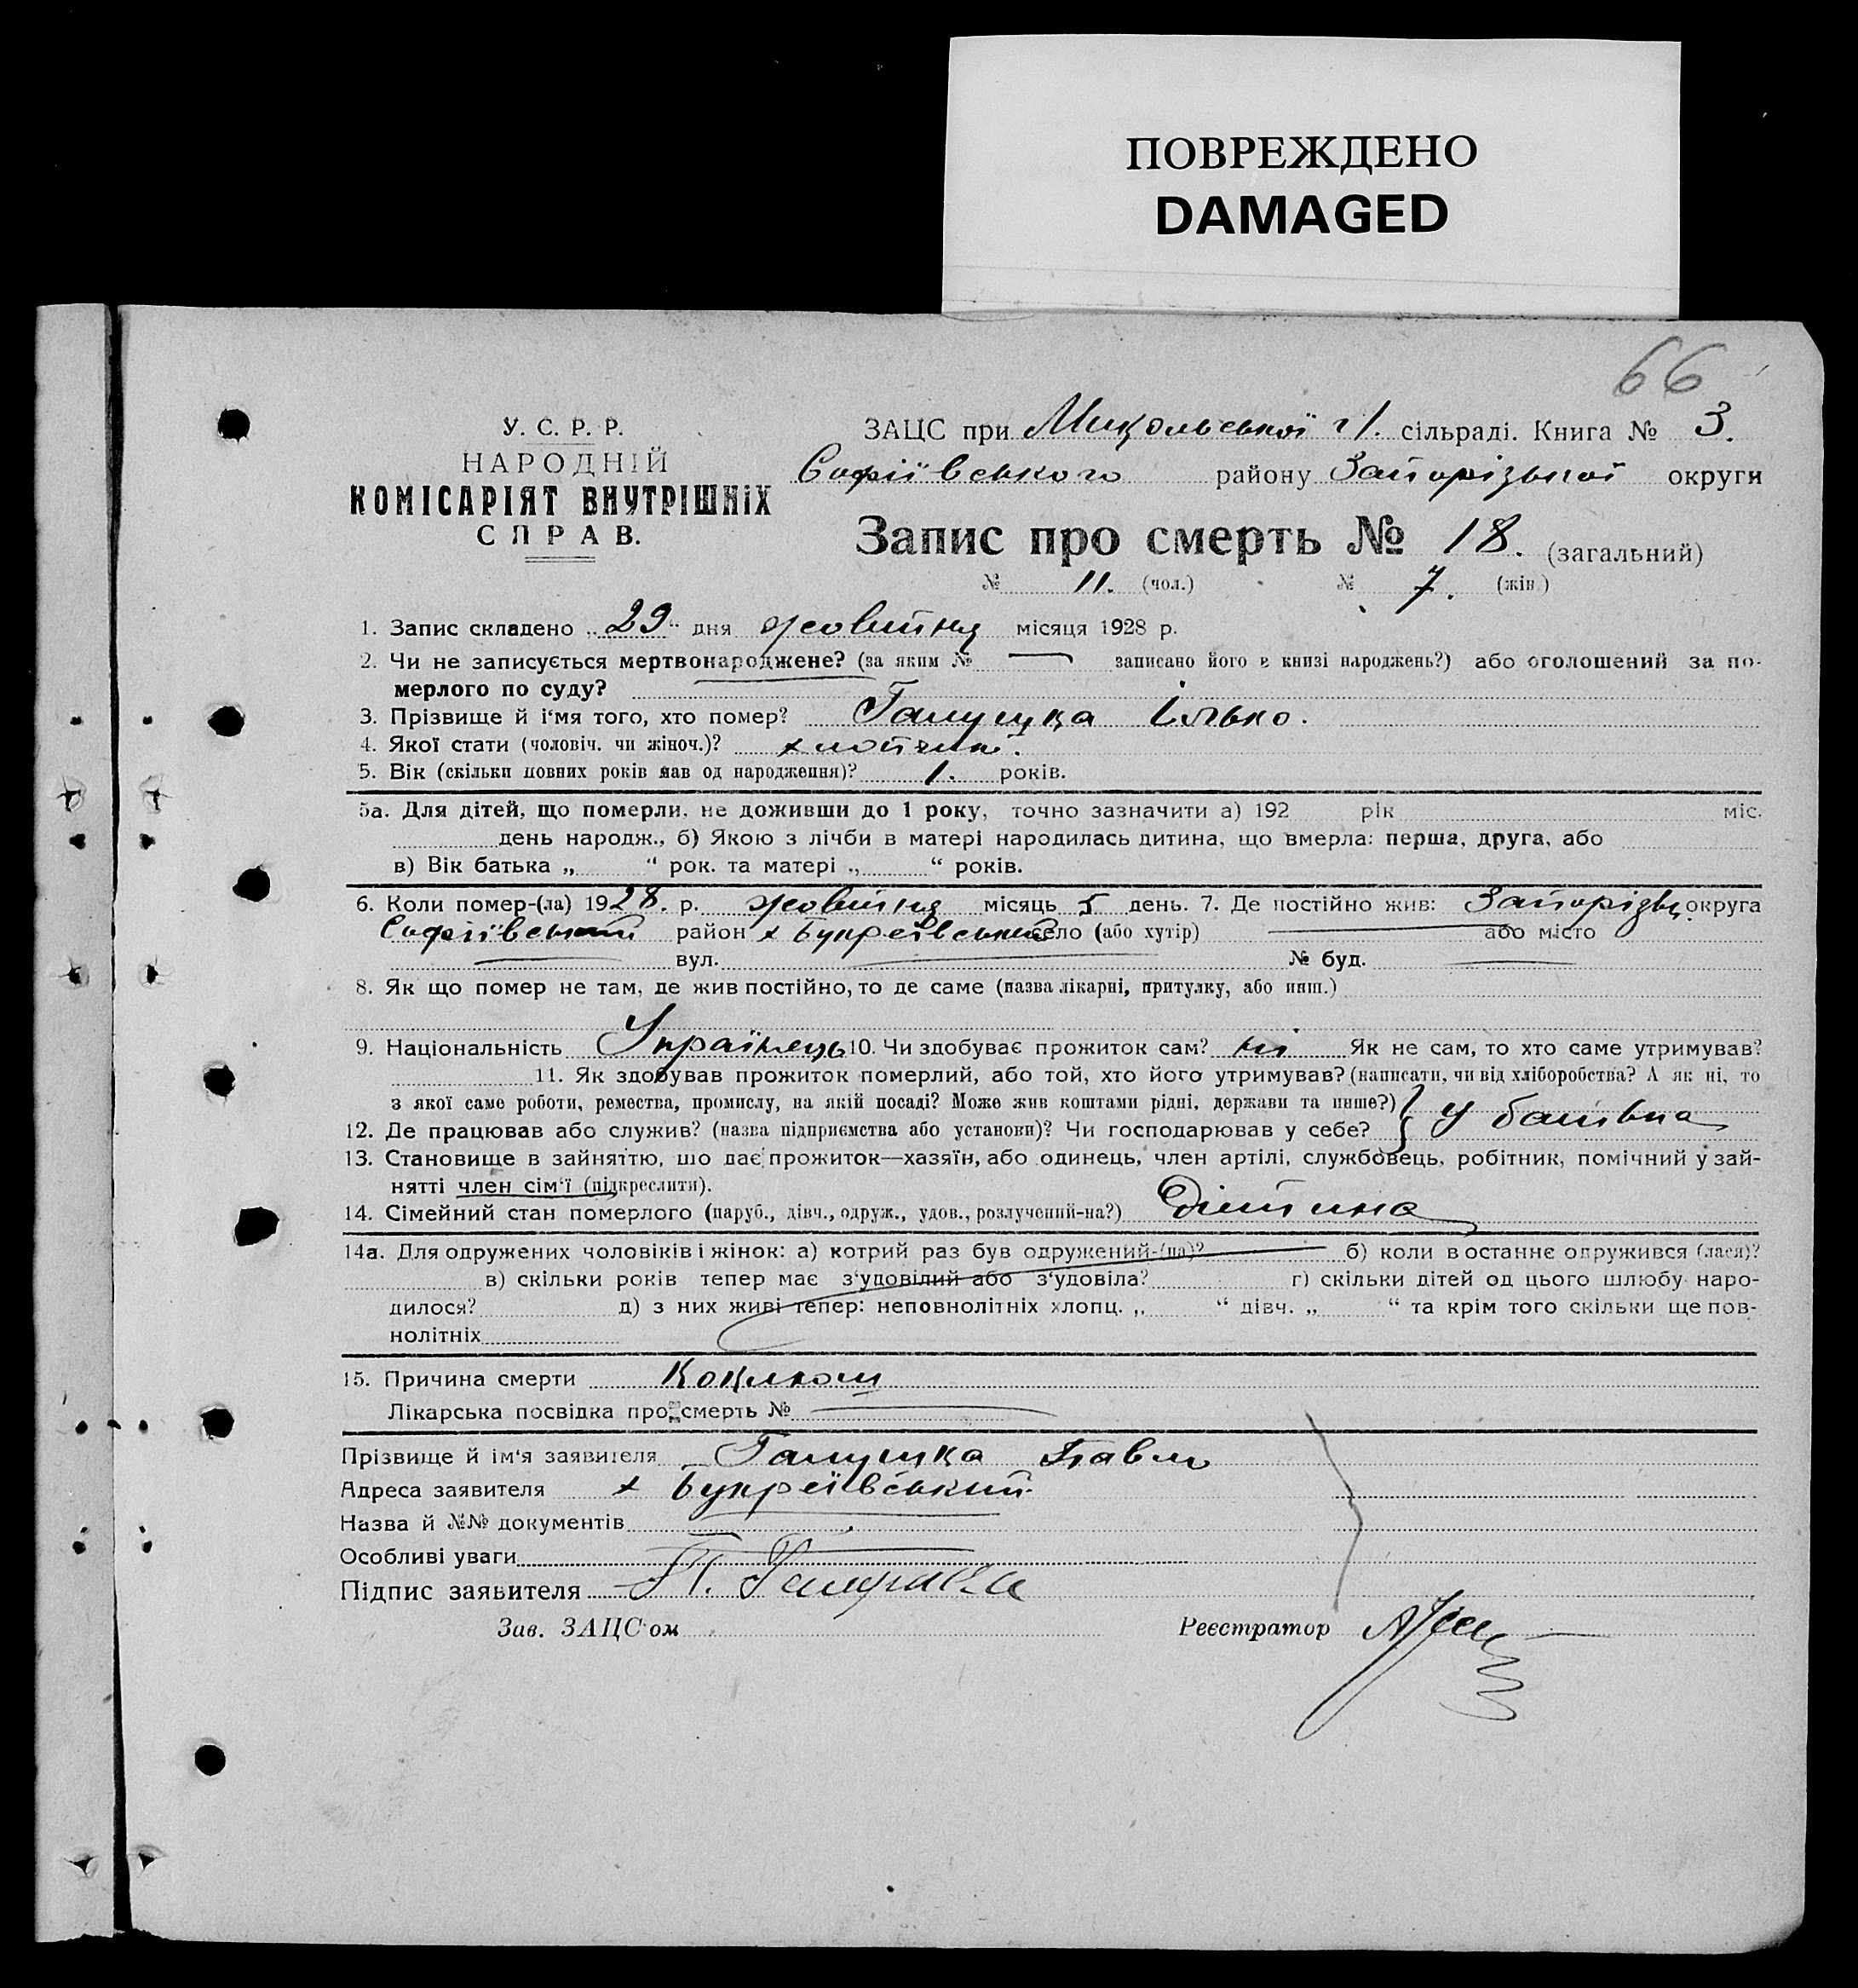 ПОВРЕЖДЕНО
DAMAGED
66
У. С. Р. Р.
НАРОДНІЙ
КОМІСАРІЯТ ВНУТРІШНІХ
СПРАВ.
ЗАЦС при Микольської сільраді. Книга № 3.
Софіївського району Запорізької округи
Запис про смерть № 18. (загальний)
№ 11. (чол.) № 7. (жін.)
1. Запис складено „29" дня жовтня місяця 1928 р.
2. Чи не записується мертвонароджене? (за яким № — записано його в книзі народжень?) або оголошений за по-
мерлого по суду?
3. Прізвище й і'мя того, хто помер? Галушка Ілько.
4. Якої стати (чоловіч. чи жіноч.)? хлопчик.
5. Вік (скільки повних років мав од народження)? 1. років.
5а. Для дітей, що померли, не доживши до 1 року, точно зазначити а) 192 рік міс.
день народж., б) Якою з лічби в матері народилась дитина, що вмерла: перша, друга, або
в) Вік батька „ " рок. та матері „ " років.
6. Коли помер-(ла) 1928. р. жовтня місяць 5 день. 7. Де постійно жив: Запорізьк. округа
Софіївський район х Букреївський село (або хутір) — або місто
— вул. — № буд. —
8. Як що помер не там, де жив постійно, то де саме (назва лікарні, притулку, або инш.)
9. Національність Українець 10. Чи здобуває прожиток сам? ні Як не сам, то хто саме утримував?
11. Як здобував прожиток померлий, або той, хто його утримував? (написати, чи від хліборобства? А як ні, то
з якої саме роботи, ремества, промислу, на якій посаді? Може жив коштами рідні, держави та инше?)
12. Де працював або служив? (назва підприємства або установи)? Чи господарював у себе? } У батька
13. Становище в зайняттю, що дає прожиток—хазяїн, або одинець, член артілі, службовець, робітник, помічний у зай-
нятті член сім'ї (підкреслити).
14. Сімейний стан померлого (паруб., дівч., одруж., удов., розлучений-на?) Дитина
14а. Для одружених чоловіків і жінок: а) котрий раз був одружений-(на)? б) коли востаннє одружився (лася)?
в) скільки років тепер має з'удовілий або з'удовіла? г) скільки дітей од цього шлюбу наро-
дилося? д) з них живі тепер: неповнолітніх хлопц. „ " дівч. „ " та крім того скільки ще пов-
нолітніх
15. Причина смерти Коклюш
Лікарська посвідка про смерть № —
Прізвище й ім'я заявителя Галушка Павло
Адреса заявителя х Букреївський
Назва й №№ документів —
Особливі уваги —
Підпис заявителя П. Галушка
Зав. ЗАЦС'ом Реєстратор